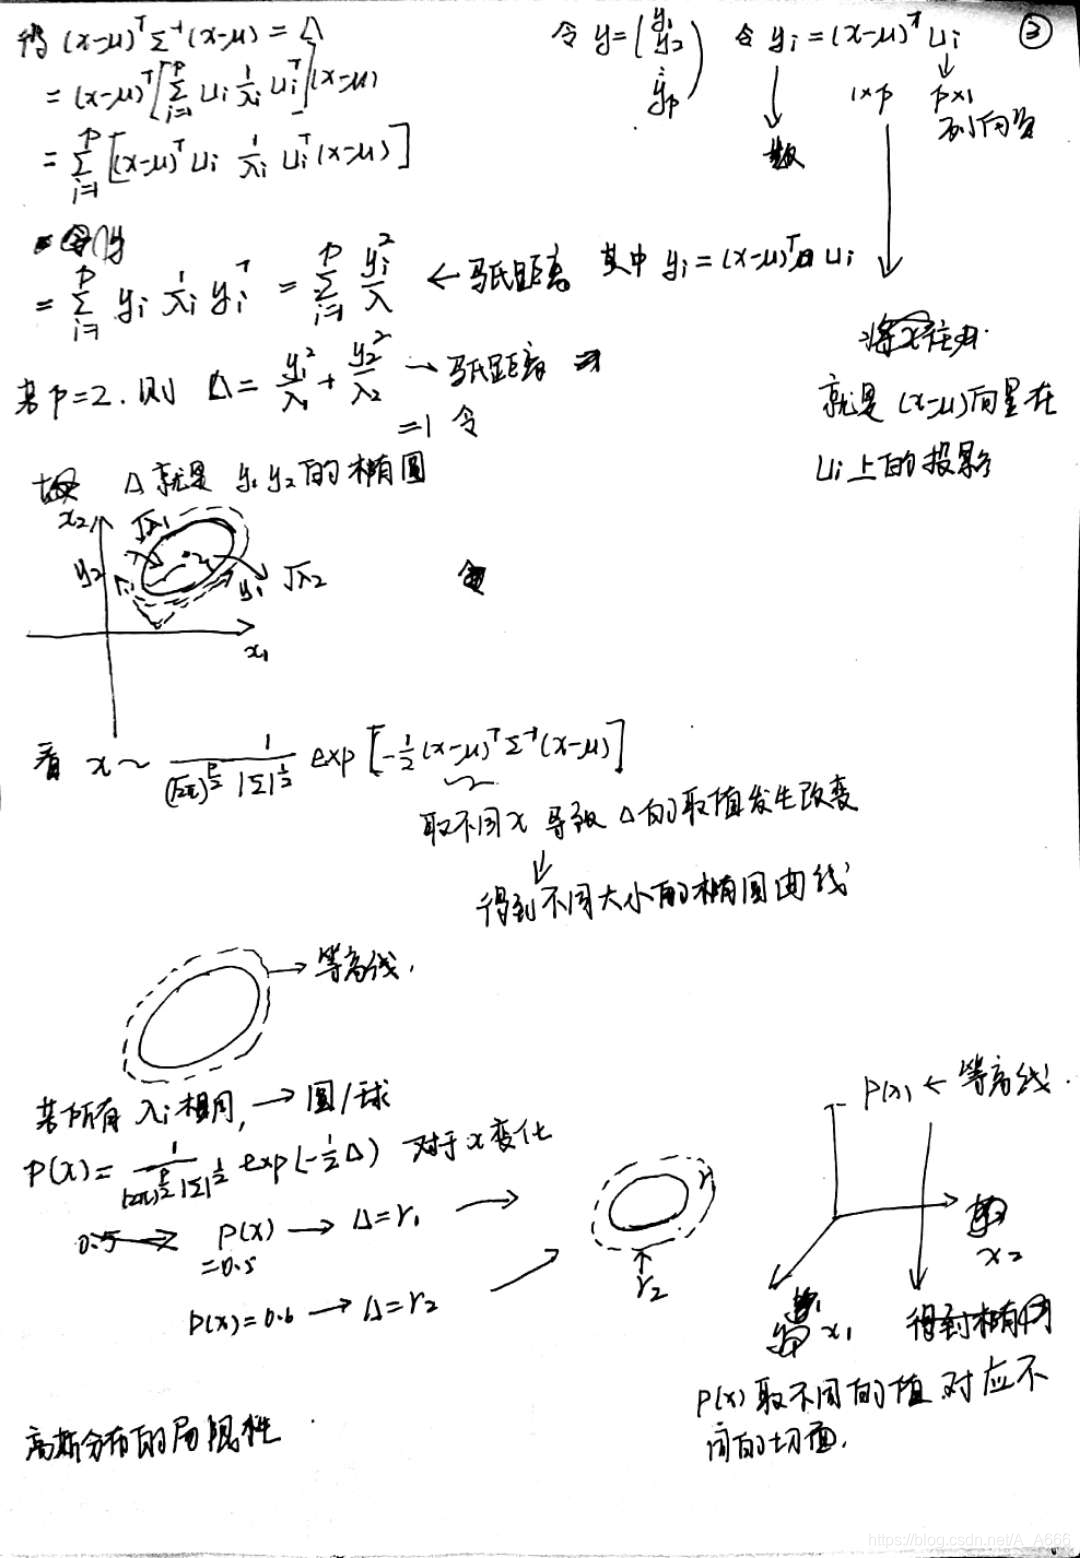 将 (x-μ)ᵀΣ⁻¹(x-μ) = Δ
= (x-μ)ᵀ[∑ᵢ₌₁ᵖ uᵢ 1/λᵢ uᵢᵀ](x-μ)
= ∑ᵢ₌₁ᵖ [(x-μ)ᵀ uᵢ 1/λᵢ uᵢᵀ(x-μ)]
= ∑ᵢ₌₁ᵖ yᵢ 1/λᵢ yᵢᵀ = ∑ᵢ₌₁ᵖ yᵢ²/λ ← 马氏距离 其中 yᵢ = (x-μ)ᵀ uᵢ
令 y = (y₁ y₂ ⋮ yₚ) 令 yᵢ = (x-μ)ᵀ uᵢ
③
↓ 数
1×p p×1
列向量
就是 (x-μ)向量在
uᵢ上的投影
若p=2. 则 Δ = y₁²/λ₁ + y₂²/λ₂ → 马氏距离 ⇒
=1 令
故 Δ就是 y₁ y₂的椭圆
x₂ √λ₁
y₂ y₁ √λ₂
x₁
看 x ~ 1/((√2π)^(p/2) |Σ|^(1/2)) exp[-1/2(x-μ)ᵀΣ⁻¹(x-μ)]
取不同x 导致 Δ的取值发生改变
↓
得到不同大小的椭圆曲线
→ 等高线.
若所有 λᵢ相同, → 圆/球
P(x) = 1/((2π)^(p/2) |Σ|^(1/2)) exp(-1/2 Δ) 对于x变化
0.5 → P(x) → Δ=r₁ →
=0.5
P(x)=0.6 → Δ=r₂
r
↑
r₂
P(x) ← 等高线.
x₂
x₁
得到椭圆
P(x)取不同的值对应不
同的切面.
高斯分布的局限性
https://blog.csdn.net/A_A666